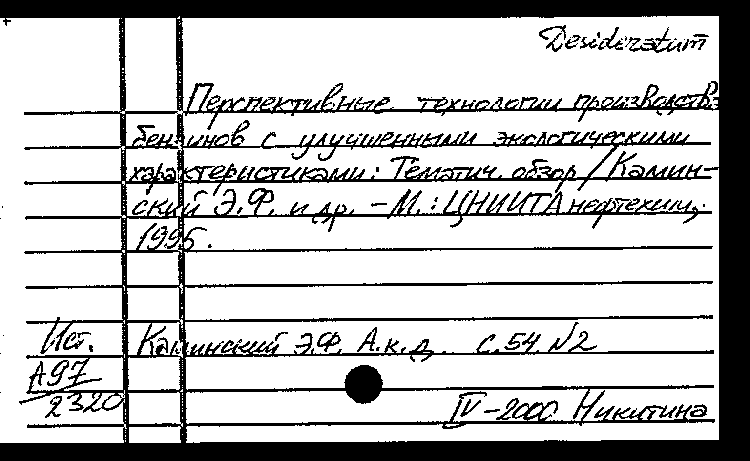 Desideratum
Перспективные технологии производства
бензинов с улучшенными экологическими
характеристиками: Тематич. обзор / Камин-
ский Э.Ф. и др. - М.: ЦНИИТАнефтехим,
1995.
Ист. Каминский Э.Ф. А.к.д. с.54 №2
А97
2320
IV-2000 Никитина